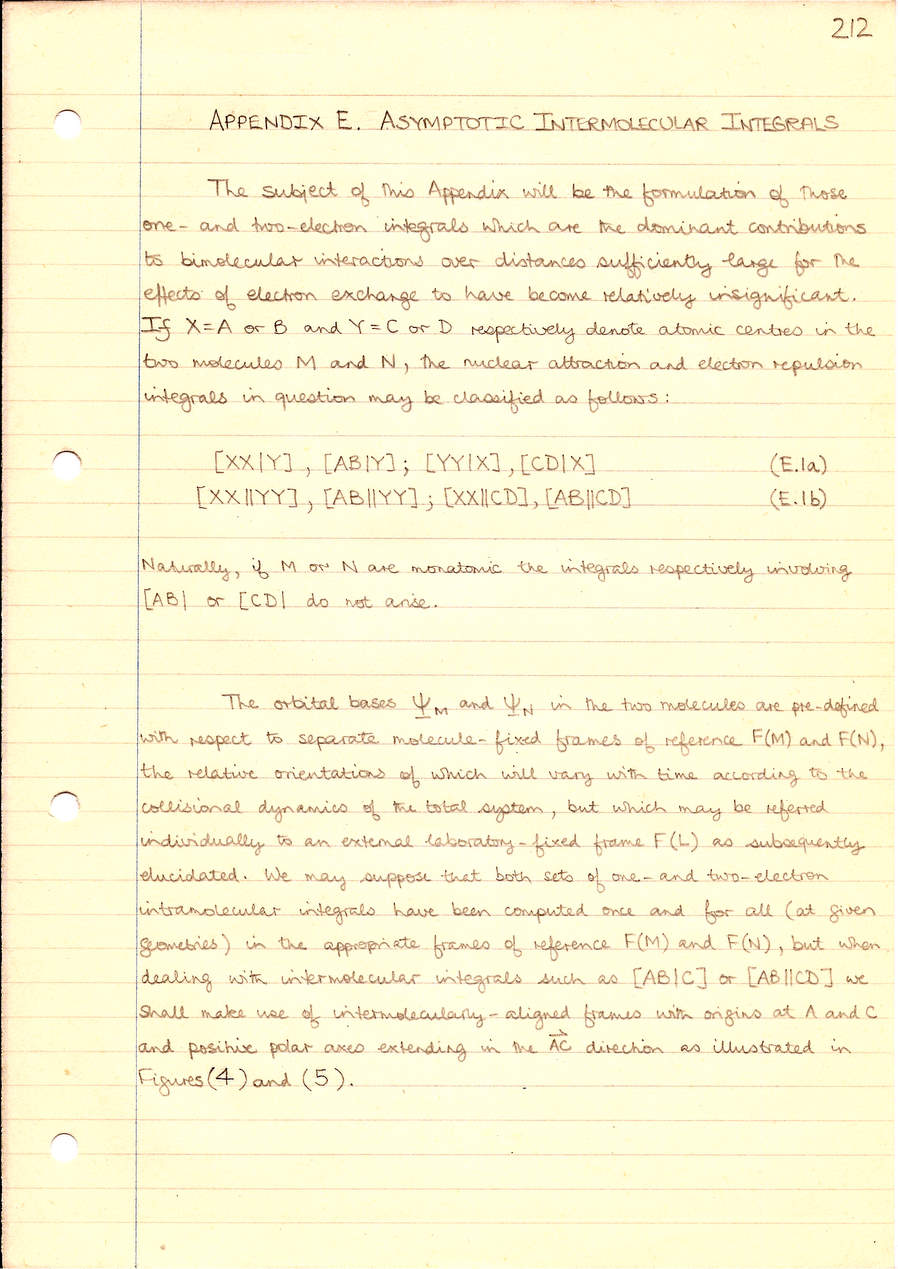 212
APPENDIX E. ASYMPTOTIC INTERMOLECULAR INTEGRALS
The subject of this Appendix will be the formulation of those
one- and two-electron integrals which are the dominant contributions
to bimolecular interactions over distances sufficiently large for the
effects of electron exchange to have become relatively insignificant.
If X=A or B and Y=C or D respectively denote atomic centres in the
two molecules M and N, the nuclear attraction and electron repulsion
integrals in question may be classified as follows:
[XX|Y], [AB|Y]; [YY|X], [CD|X] (E.1a)
[XX||YY], [AB||YY]; [XX||CD], [AB||CD] (E.1b)
Naturally, if M or N are monatomic the integrals respectively involving
[AB| or [CD| do not arise.
The orbital bases Ψ_M and Ψ_N in the two molecules are pre-defined
with respect to separate molecule-fixed frames of reference F(M) and F(N),
the relative orientations of which will vary with time according to the
collisional dynamics of the total system, but which may be referred
individually to an external laboratory-fixed frame F(L) as subsequently
elucidated. We may suppose that both sets of one- and two-electron
intramolecular integrals have been computed once and for all (at given
geometries) in the appropriate frames of reference F(M) and F(N), but when
dealing with intermolecular integrals such as [AB|C] or [AB||CD] we
shall make use of intermolecularly-aligned frames with origins at A and C
and positive polar axes extending in the A⃗C⃗ direction as illustrated in
Figures (4) and (5).